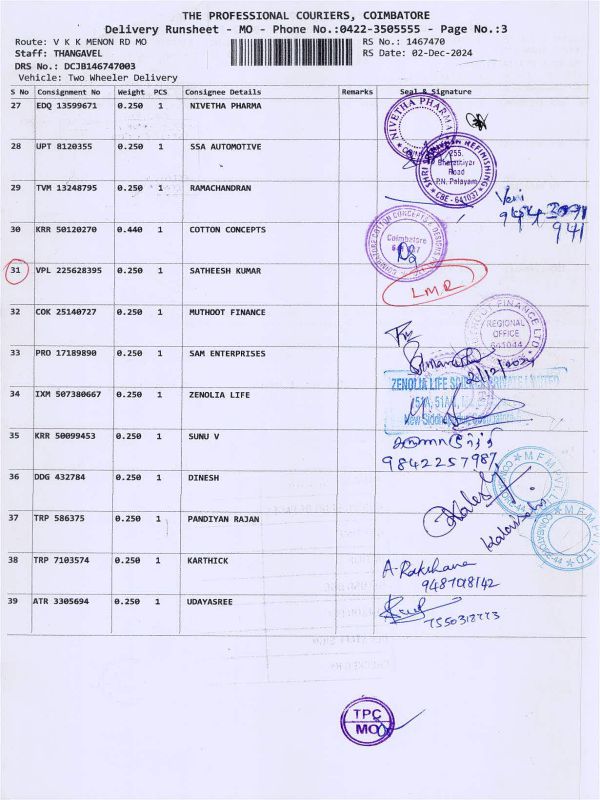 THE PROFESSIONAL COURIERS, COIMBATORE
Delivery Runsheet - MO - Phone No.:0422-3505555 - Page No.:3
Route: V K K MENON RD MO
RS No.: 1467470
Staff: THANGAVEL
RS Date: 02-Dec-2024
DRS No.: DCJB146747003
Vehicle: Two Wheeler Delivery
S No Consignment No Weight PCS Consignee Details Remarks Seal & Signature
27 EDQ 13599671 0.250 1 NIVETHA PHARMA
NIVETHA PHARMA
28 UPT 8120355 0.250 1 SSA AUTOMOTIVE
REFINISHING
255,
Bharathiyar
Road
P.N. Palayam
CBE - 641037
29 TVM 13248795 0.250 1 RAMACHANDRAN
Veni
941
30 KRR 50120270 0.440 1 COTTON CONCEPTS
COTTON CONCEPTS & DESIGNS
Coimbatore
31 VPL 225628395 0.250 1 SATHEESH KUMAR
L.M.R
32 COK 25140727 0.250 1 MUTHOOT FINANCE
FINANCE LTD
REGIONAL
OFFICE
641044
33 PRO 17189890 0.250 1 SAM ENTERPRISES
2/12/2024
34 IXM 507380667 0.250 1 ZENOLIA LIFE
ZENOLIA LIFE
35 KRR 50099453 0.250 1 SUNU V
9842257987
36 DDG 432784 0.250 1 DINESH
M F M PVT LTD
37 TRP 586375 0.250 1 PANDIYAN RAJAN
M F M PVT LTD
38 TRP 7103574 0.250 1 KARTHICK
A-Rakshana
9487018142
39 ATR 3305694 0.250 1 UDAYASREE
7550312773
TPC
MO